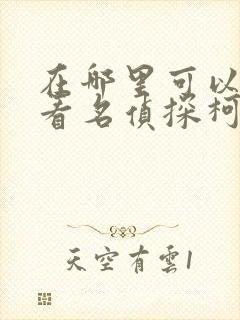 在哪里可以
看名侦探柯
天空有雲1